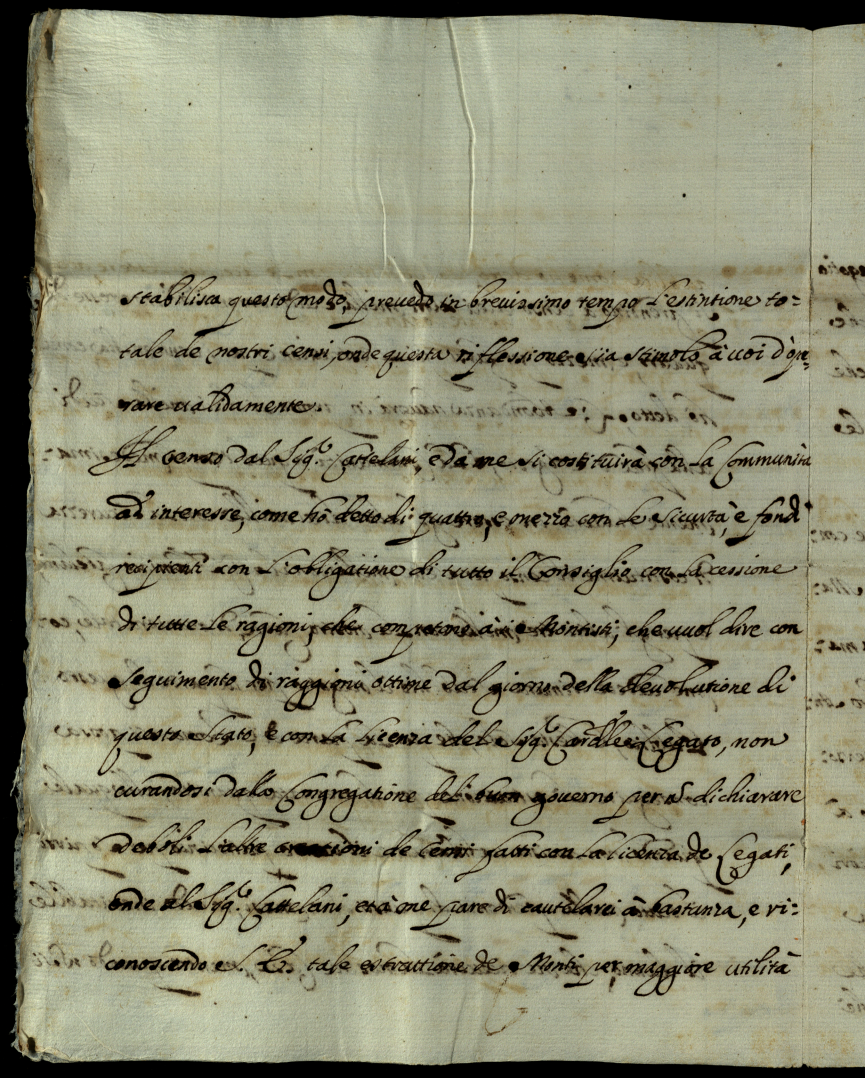 stabilisca questo modo, prevedo in brevissimo tempo l'estintione to=
tale de nostri censi, onde questa riflessione sia stimolo à voi d'ope=
rare validamente.
Il censo dal Sig.r Cattelani, e da me si costituirà con la Communità
ad interesse, come hò detto di quattro, e mezzo con le sicurtà, e fondi
recipienti con l'obligatione di tutto il Consiglio con la cessione
di tutte le ragioni, che competono à i Montisti, che vuol dire con
seguimento di raggioni ottime dal giorno della devolutione di
questo Stato, e con la licenza del Sig.r Card.le Legato, non
curandosi dalla Congregatione del buon governo per dichiarare
deboli l'altre creationi de censi fatti con la licenza de Legati,
onde al Sig.r Cattelani, et à me pare di cautelarci à bastanza, e ri=
conoscendo S. E. tale estrattione de Monti per maggiore utilità